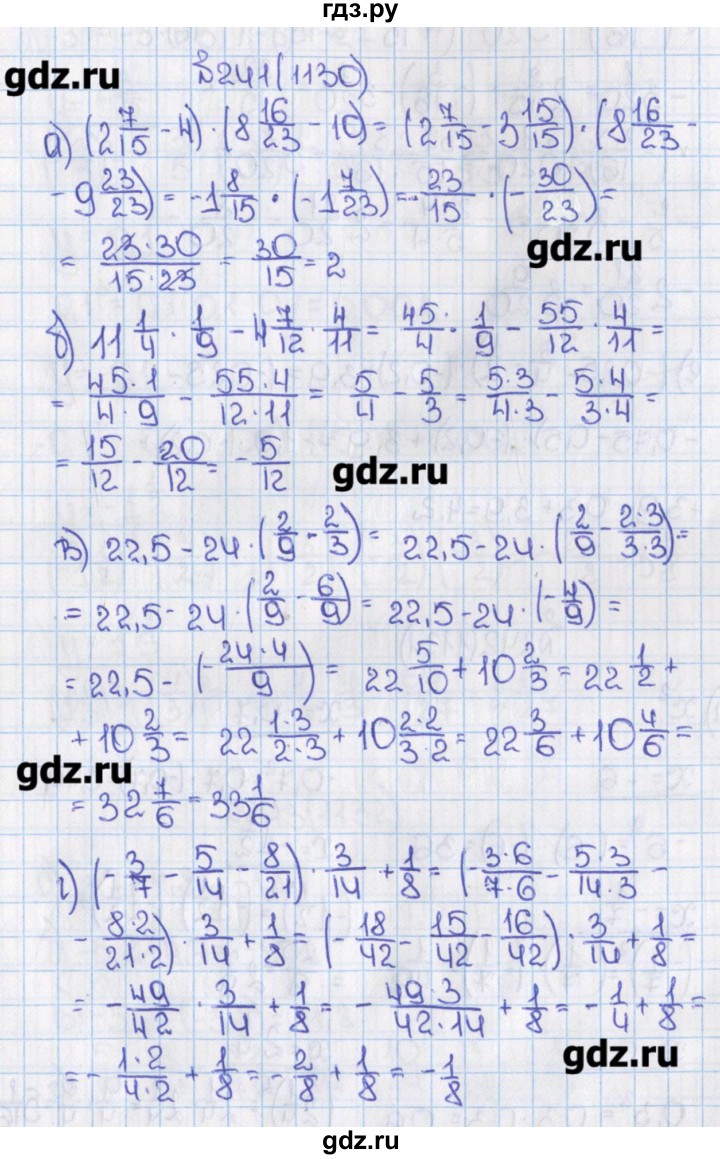 гдз.ру
gdz.ru
№241(1130)
а) (2 7/15 - 4) · (8 16/23 - 10) = (2 7/15 - 3 15/15) · (8 16/23 -
- 9 23/23) = -1 8/15 · (-1 7/23) = - 23/15 · (- 30/23) =
gdz.ru
= 23·30/15·23 = 30/15 = 2
б) 11 1/4 · 1/9 - 4 7/12 · 4/11 = 45/4 · 1/9 - 55/12 · 4/11 =
= 45·1/4·9 - 55·4/12·11 = 5/4 - 5/3 = 5·3/4·3 - 5·4/3·4 =
= 15/12 - 20/12 = - 5/12
gdz.ru
в) 22,5 - 24 · (2/9 - 2/3) = 22,5 - 24 · (2/9 - 2·3/3·3) =
= 22,5 - 24 · (2/9 - 6/9) = 22,5 - 24 · (- 4/9) =
= 22,5 - (- 24·4/9) = 22 5/10 + 10 2/3 = 22 1/2 +
+ 10 2/3 = 22 1·3/2·3 + 10 2·2/3·2 = 22 3/6 + 10 4/6 =
gdz.ru
= 32 7/6 = 33 1/6
г) (- 3/7 - 5/14 - 8/21) · 3/14 + 1/8 = (- 3·6/7·6 - 5·3/14·3 -
- 8·2/21·2) · 3/14 + 1/8 = (- 18/42 - 15/42 - 16/42) · 3/14 + 1/8 =
= - 49/42 · 3/14 + 1/8 = - 49·3/42·14 + 1/8 = - 1/4 + 1/8 =
gdz.ru
= - 1·2/4·2 + 1/8 = - 2/8 + 1/8 = - 1/8
gdz.ru